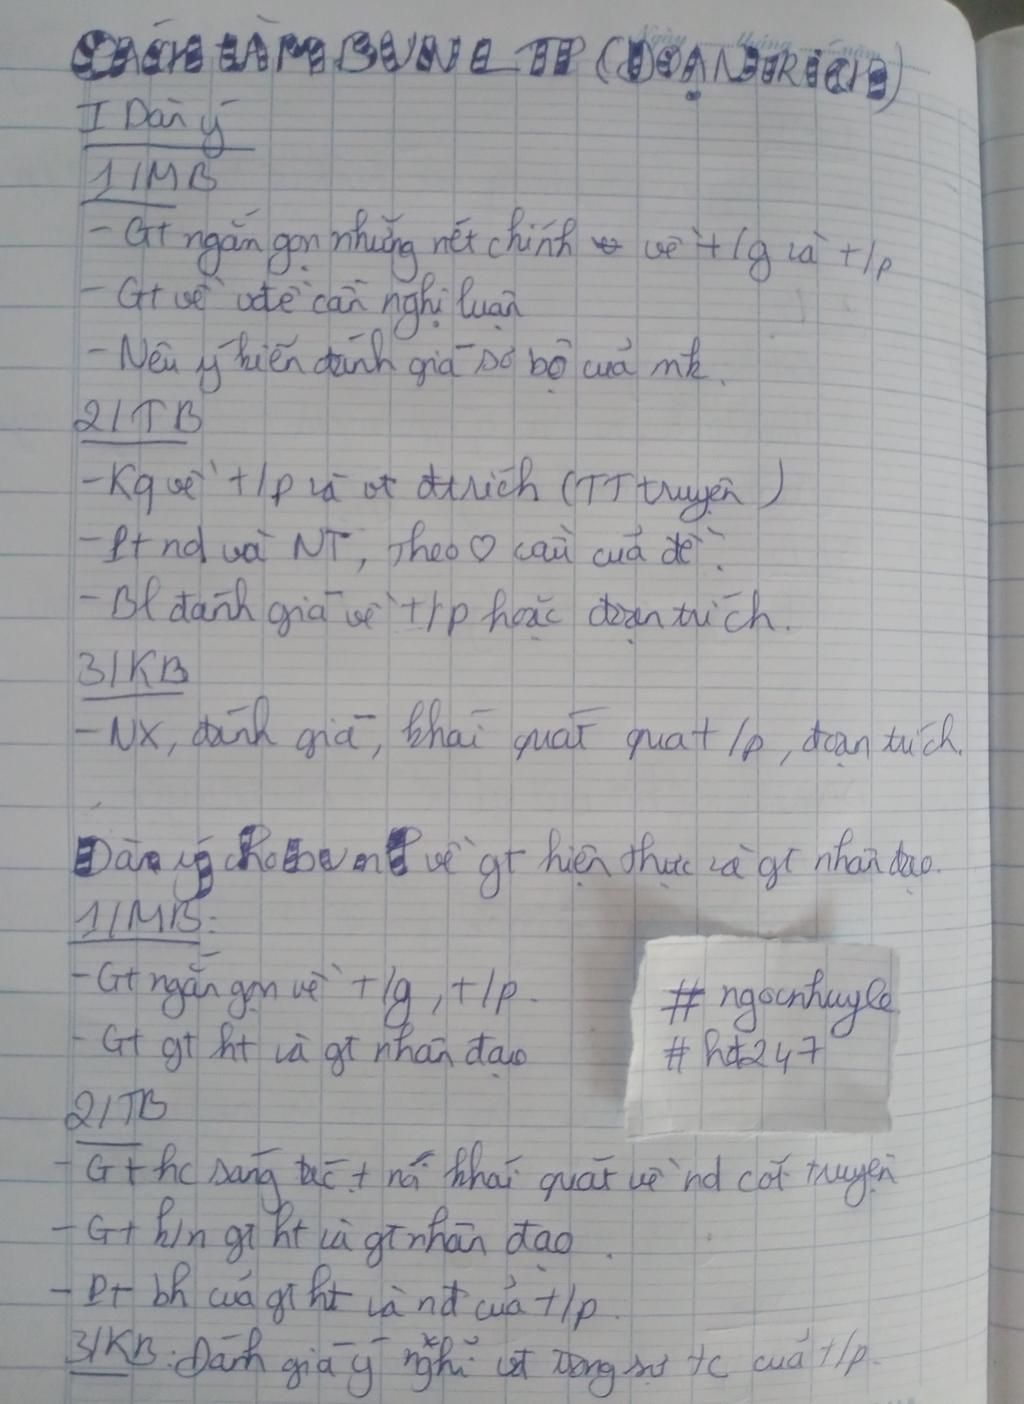 CÁCH LÀM BVNL TP (ĐOẠN TRÍCH)
I Dàn ý
1/MB
- Gt ngắn gọn những nét chính về t/g và t/p
- Gt về vđề cần nghị luận
- Nêu ý kiến đánh giá sơ bộ của mk.
2/TB
- Kq về t/p và đtrích (TT truyện)
- Pt nd và NT, theo ♡ cầu của đề.
- Bl đánh giá về t/p hoặc đoạn trích.
3/KB
- NX, đánh giá, khái quát qua t/p, đoạn trích.
Dàn ý cho bvnl về gt hiện thực và gt nhân đạo.
1/MB:
- Gt ngắn gọn về t/g, t/p.
- Gt gt ht và gt nhân đạo
#ngocnhuyle
#hđ247
2/TB
- Gt hc sáng tác + nói khái quát về nd cốt truyện
- Gt k/n gt ht và gt nhân đạo.
- Pt bh của gt ht và nđ của t/p.
3/KB: Đánh giá ý nghĩ trong sự tc của t/p.